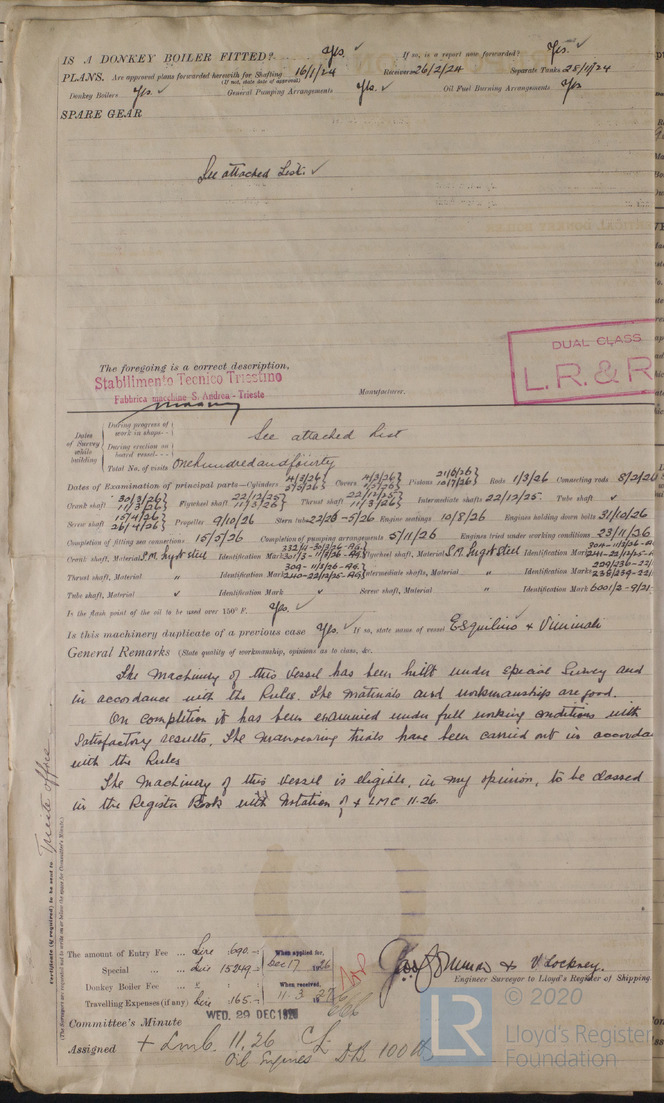 IS A DONKEY BOILER FITTED? Yes. ✓ If so, is a report now forwarded? Yes. ✓
PLANS. Are approved plans forwarded herewith for Shafting 16/1/24 Receivers 26/2/24 Separate Tanks 28/11/24
(If not, state date of approval)
Donkey Boilers Yes. ✓ General Pumping Arrangements Yes. ✓ Oil Fuel Burning Arrangements Yes
SPARE GEAR
See attached List. ✓
DUAL CLASS
L.R. & R
The foregoing is a correct description,
Stabilimento Tecnico Triestino
Fabbrica macchine S. Andrea - Trieste
Manufacturer.
Dates of Survey while building
During progress of work in shops--
During erection on board vessel---
See attached List
Total No. of visits One hundred and fourty
Dates of Examination of principal parts—Cylinders 4/3/26 Covers 4/3/26 Pistons 21/6/26 10/7/26 Rods 1/3/26 Connecting rods 8/2/26
Crank shaft 30/3/26 11/3/26 Flywheel shaft 22/12/25 11/3/26 Thrust shaft 22/12/25 11/3/26 Intermediate shafts 22/12/25 Tube shaft ✓
Screw shaft 15/4/26 26/4/26 Propeller 9/10/26 Stern tube Engine seatings 10/8/26 Engines holding down bolts 31/10/26
Completion of fitting sea connections 15/5/26 Completion of pumping arrangements 5/11/26 Engines tried under working conditions 23/11/26
Crank shaft, Material S.M. Ingot steel Identification Mark Flywheel shaft, Material S.M. Ingot steel Identification Mark
Thrust shaft, Material " Identification Mark Intermediate shafts, Material " Identification Marks
Tube shaft, Material ✓ Identification Mark ✓ Screw shaft, Material " Identification Mark
Is the flash point of the oil to be used over 150° F. Yes. ✓
Is this machinery duplicate of a previous case Yes. ✓ If so, state name of vessel Esquilino & Viminale
General Remarks (State quality of workmanship, opinions as to class, &c.
The Machinery of this Vessel has been built under Special Survey and
in accordance with the Rules. The materials and workmanships are good.
On completion it has been examined under full working conditions with
satisfactory results. The manouvring trials have been carried out in accorda
with the Rules
The Machinery of this vessel is eligible, in my opinion, to be classed
in the Register Book with Notation of + LMC 11.26.
Certificate (if required) to be sent to Trieste office
(The Surveyors are requested not to write on or below the space for Committee's Minute.)
The amount of Entry Fee ... Lire 690.- When applied for,
Special ... Lire 15249.- Dec 17 1926
Donkey Boiler Fee ... " When received,
Travelling Expenses (if any) Lire 165.- 11.3.1927
& V. Lockney.
Engineer Surveyor to Lloyd's Register of Shipping.
Committee's Minute WED. 29 DEC 1926
Assigned + LMC. 11.26 CL
Oil Engines DB 100 lb
LR
© 2020
Lloyd's Register
Foundation